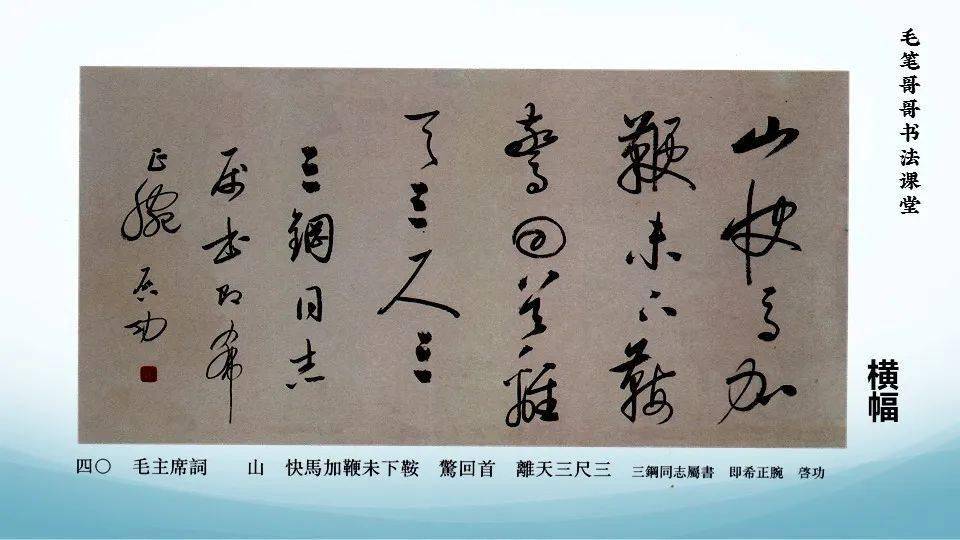 山快馬加
鞭未下鞍
驚回首離
天三尺三
三鋼同志
属书即希
正腕 启功
毛笔哥哥书法课堂
横幅
四〇 毛主席詞 山 快馬加鞭未下鞍 驚回首 離天三尺三 三鋼同志屬書 即希正腕 啓功